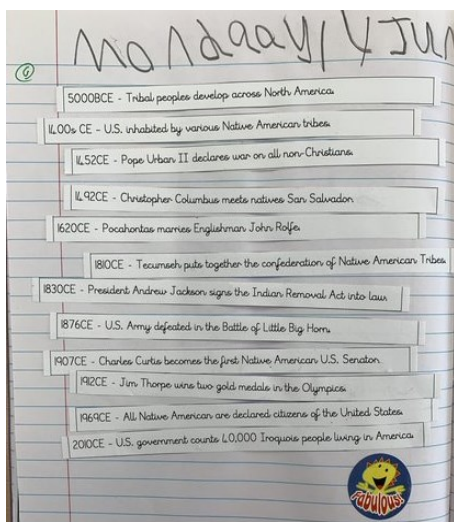 Mondaay, 4 Jun
5000BCE - Tribal peoples develop across North America.
1400s CE - U.S. inhabited by various Native American tribes.
1452CE - Pope Urban II declares war on all non-Christians.
1492CE - Christopher Columbus meets natives San Salvador.
1620CE - Pocahontas marries Englishman John Rolfe.
1810CE - Tecumseh puts together the confederation of Native American Tribes.
1830CE - President Andrew Jackson signs the Indian Removal Act into law.
1876CE - U.S. Army defeated in the Battle of Little Big Horn.
1907CE - Charles Curtis becomes the first Native American U.S. Senator.
1912CE - Jim Thorpe wins two gold medals in the Olympics.
1969CE - All Native American are declared citizens of the United States.
2010CE - U.S. government counts 40,000 Iroquois people living in America.
Fabulous!